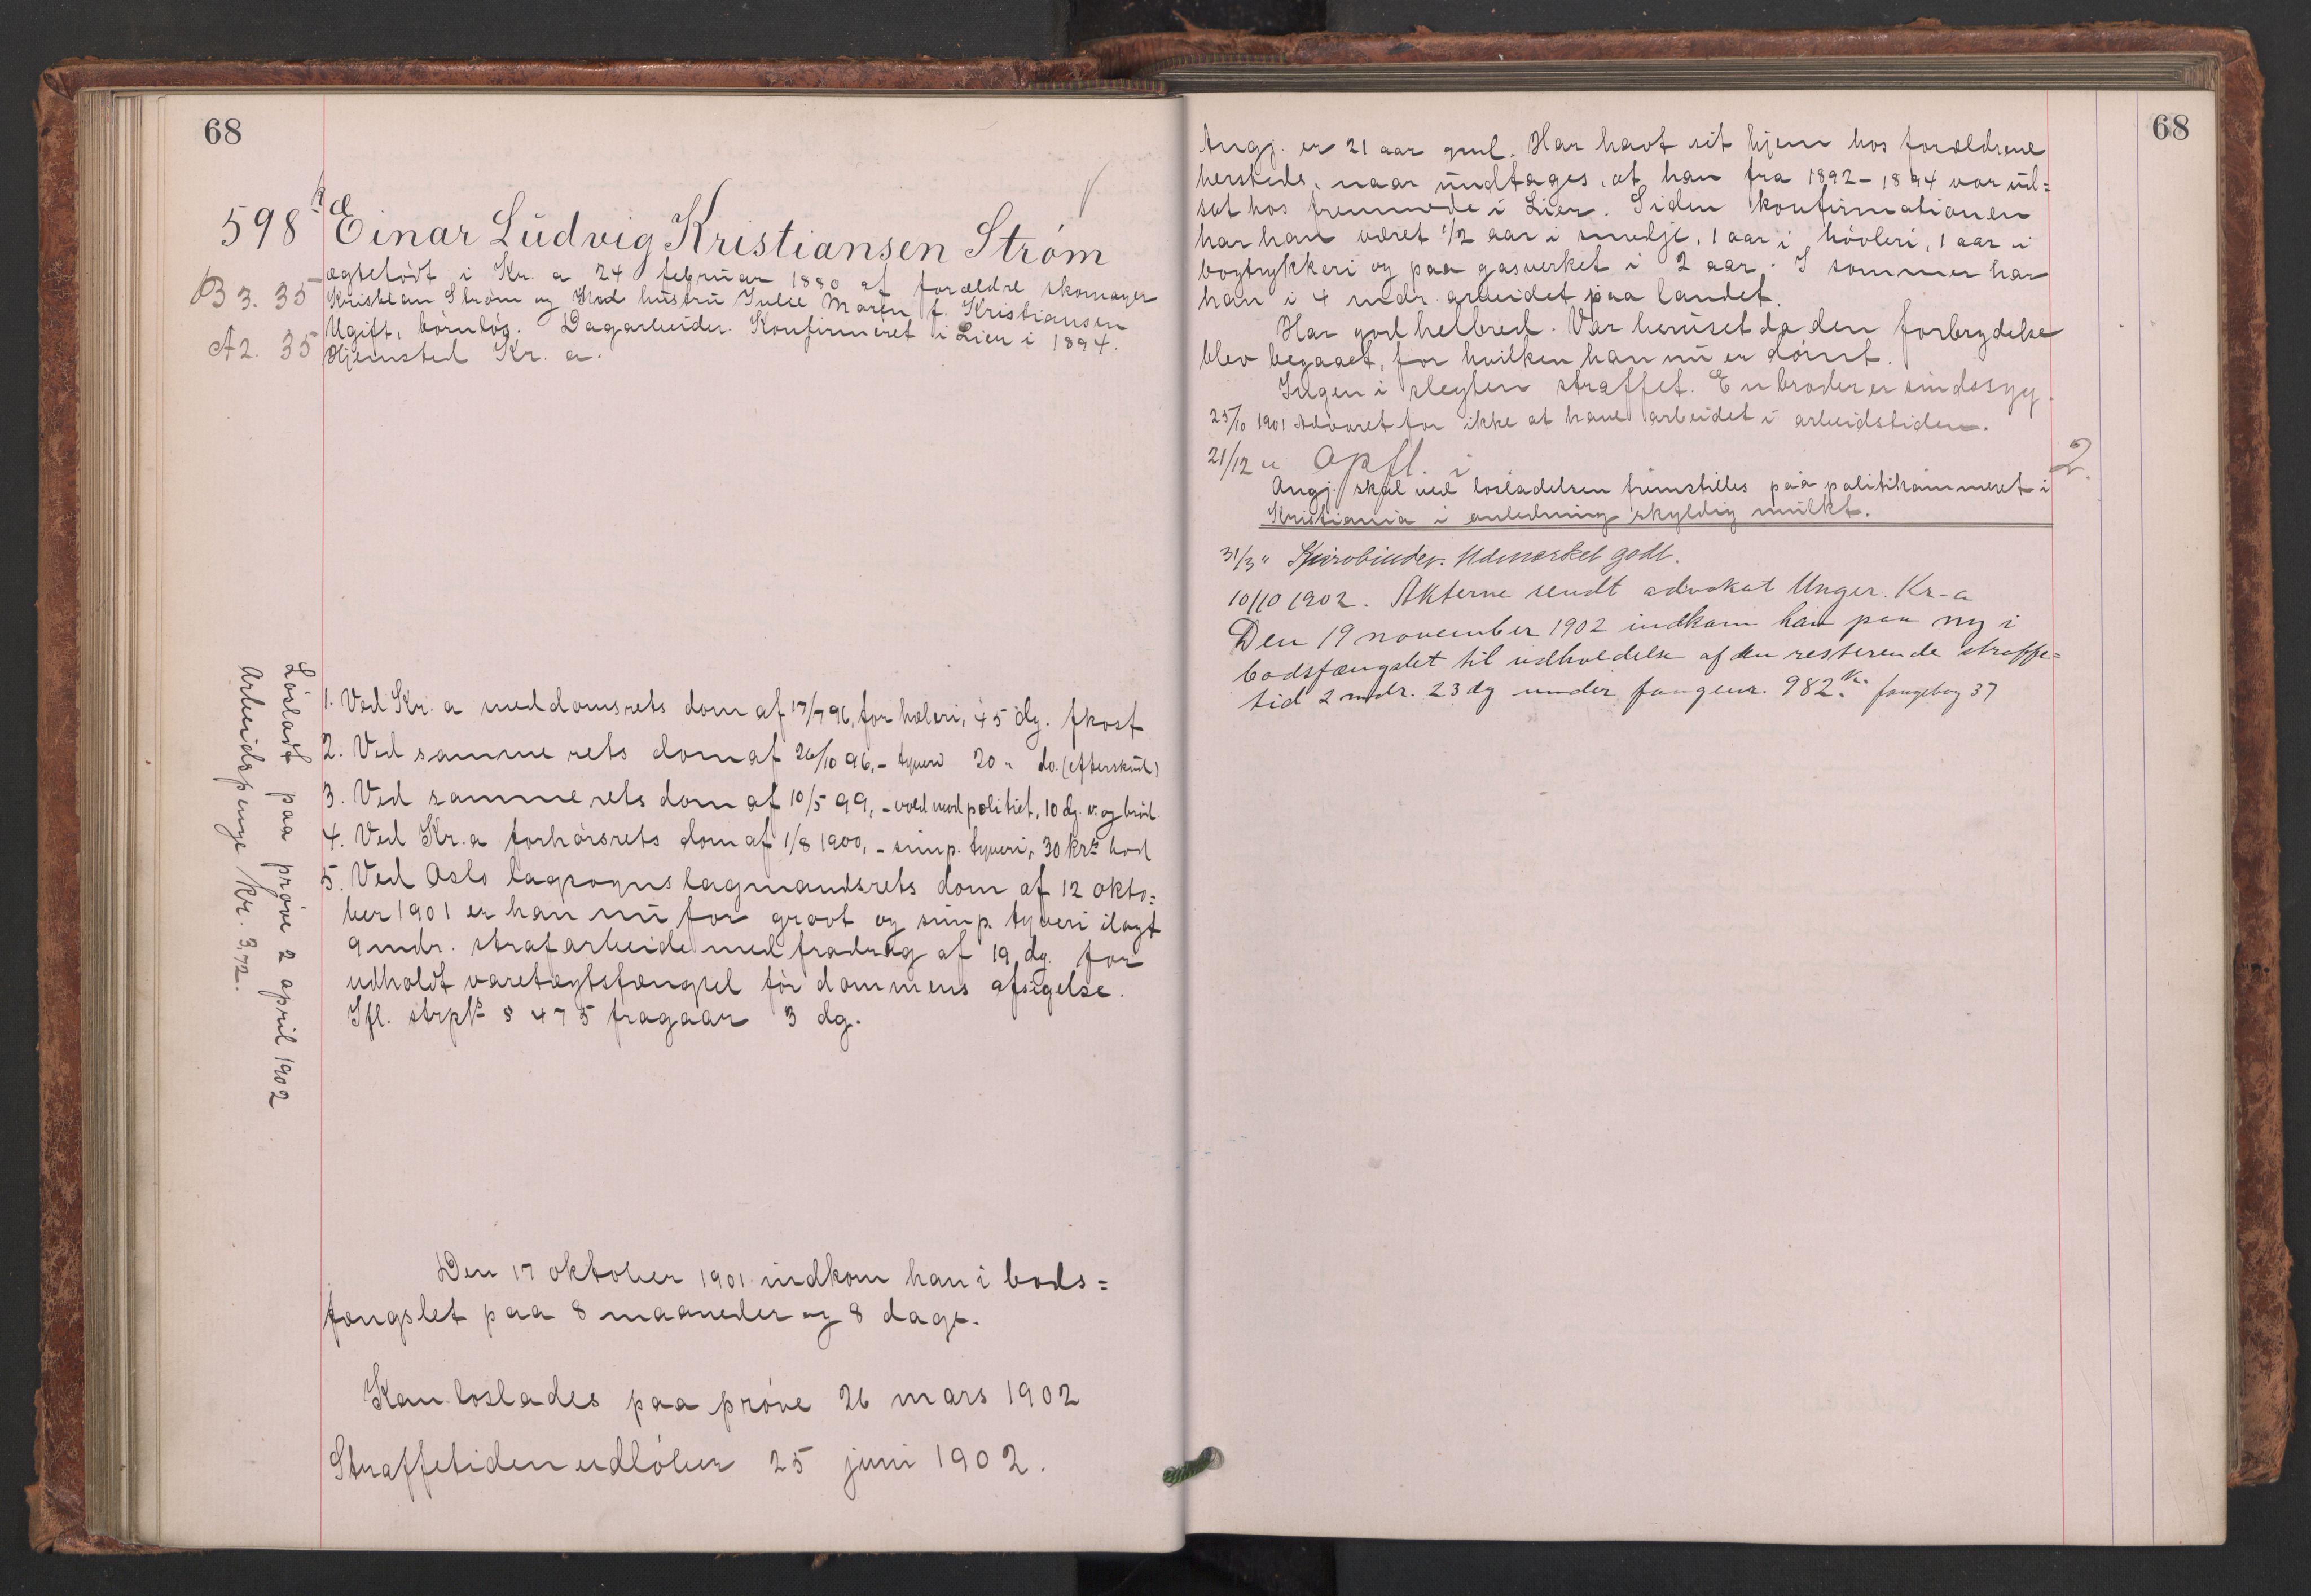 68
598 Einar Ludvig Kristiansen Strøm
B 3. 35
A 2. 35
ægtefødt i Kr.a 24 februar 1880 af forældre skomager
Kristian Strøm og hustru Julie Maren f. Kristiansen
Ugift, børnløs. Dagarbeider. Konfirmeret i Lier i 1894.
Hjemsted Kr.a.
1. Ved Kr.a meddomsrets dom af 17/7 96, for hæleri, 45 dg. fkost
2. Ved samme rets dom af 26/10 96, – tyveri 20 " do. (efterskud)
3. Ved samme rets dom af 10/5 99, – vold mod politiet, 10 dg. v. og brød.
4. Ved Kr.a forhørsrets dom af 1/8 1900, – simp. tyveri, 30 krs bod
5. Ved Oslo lagsogns lagmandsrets dom af 12 okto=
ber 1901 er han nu for grovt og simp. tyveri ilagt
9 mdr. strafarbeide med fradrag af 19 dg. for
udholdt varetægtsfængsel før dommens afsigelse.
Ifl. strpl § 475 fragaar 3 dg.
Løsladt paa prøve 2 april 1902
Arbeidspenge Kr. 3,72.
Den 17 oktober 1901 indkom han i bods=
fængslet paa 8 maaneder og 8 dage.
Kan løslades paa prøve 26 mars 1902
Straffetiden udløber 25 juni 1902.
68
Angj. er 21 aar gml. Har havt sit hjem hos forældrene
hersteds, naar undtages, at han fra 1892–1894 var ud=
sat hos fremmede i Lier. Siden konfirmationen
har han været 1/2 aar i smedje, 1 aar i høvleri, 1 aar i
bogtrykkeri og paa gasverket i 2 aar. I sommer har
han i 4 mdr. arbeidet paa landet.
Har god helbred. Var beruset da den forbrydelse
blev begaaet, for hvilken han nu er dømt.
Ingen i slegten straffet. En broder er sindssyg.
25/10 1901 Advaret for ikke at have arbeidet i arbeidstiden.
21/12 " Opfl. i
2.
Angj. skal ved løsladelsen fremstilles paa politikammeret i
Kristiania i anledning skyldig mulkt.
31/3 " Udmerket godt.
10/10 1902. Akterne sendt advokat Unger. Kr-a
Den 19 november 1902 indkom han paa ny i
bodsfængslet til udholdelse af den resterende straffe=
tid 2 mdr. 23 dg under fangenr. 982. fangebog 37